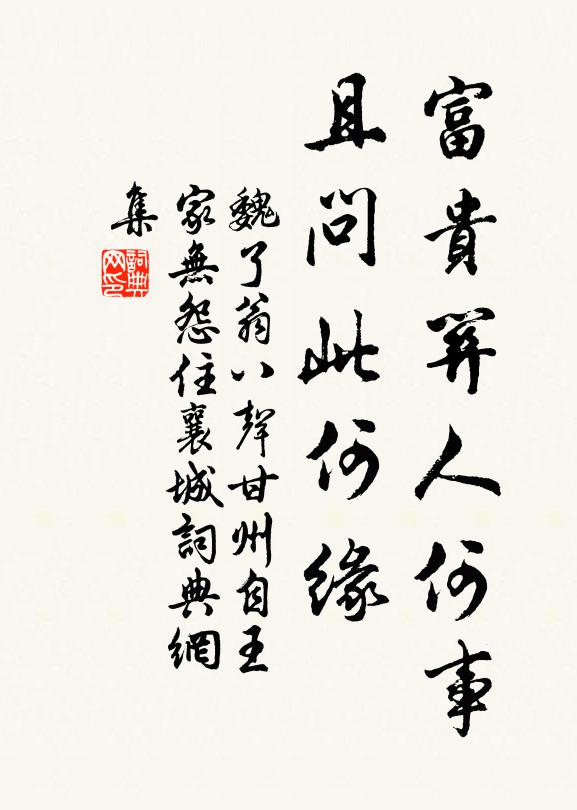 富貴關人何事
且問此何緣
魏了翁八聲甘州自王
家無怨住襄城詞典網
集
詞典网印